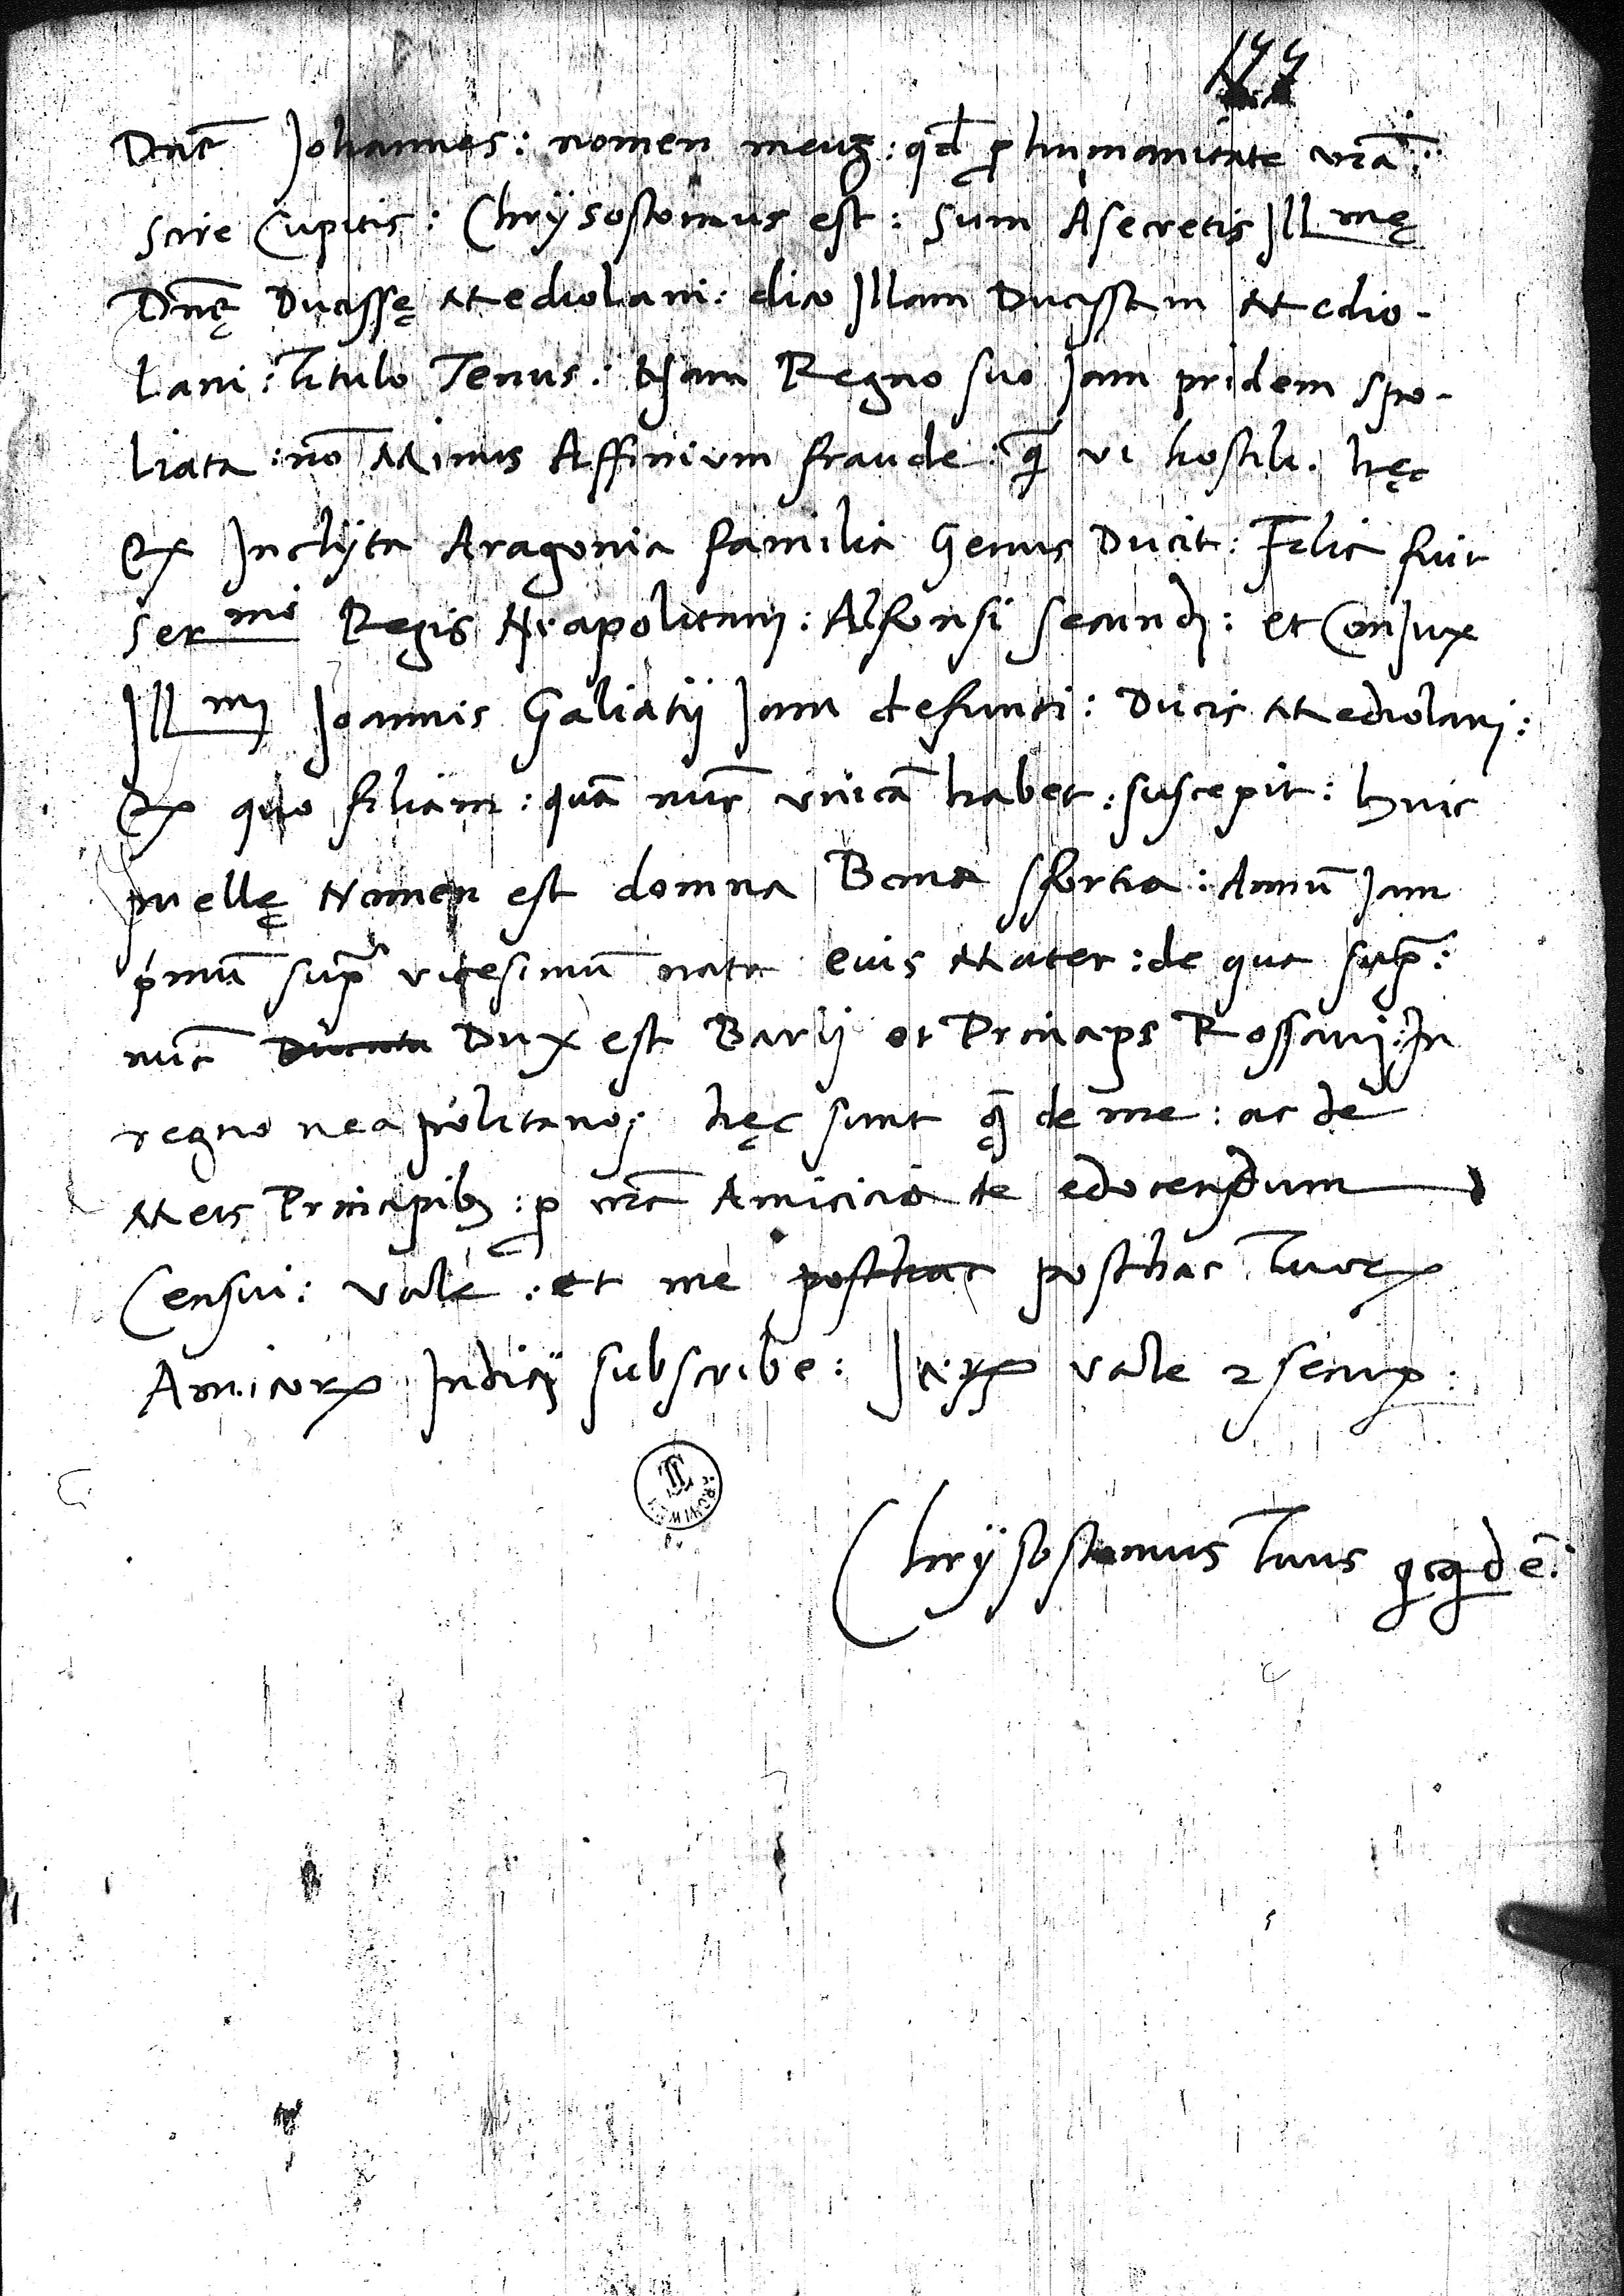 Dnē Johannes: nomen meuȝ: qd ꝓ humanitate vrā:
scire Cupitis: Chrÿsostomus est: Sum Asecretis Ill mę
Dnę Ducissę Mediolani: dico Illam Ducissam Medio-
lani: Titulo Tenus: Nam Regno suo Jam pridem spo-
liata: nō Minus Affinium fraude: q̄ vi hostili. hęc
Ex Inclÿta Aragonia familia Genus Ducit: Filia fuit
Ser mi Regis Neapolitanj: Alfonsi secundj: et Coniux
Ill mj Joannis Galiatij Jam defuncti: Ducis Mediolanj:
Ex quo filiam: quā nūc vnicā habet: suscepit: huic
puellę Nomen est domna Bona Sfortia: Annū Jam
pͥmū supͣ vicesimū nata eius Mater: de qua supͣ:
nūc Ducata Dux est Barij et Princeps Rossanj: In
regno neapolitano; hęc sunt q̄ de me: ac de
Meis Principibȝ: ꝓ vrā Amicicia te edocendum
Censui: Vale: et me posthac posthac Tuoꝝ
Amicoꝝ Indicij subscribe: Vale ⁊ semꝑ:
Chrÿsostomus Tuus